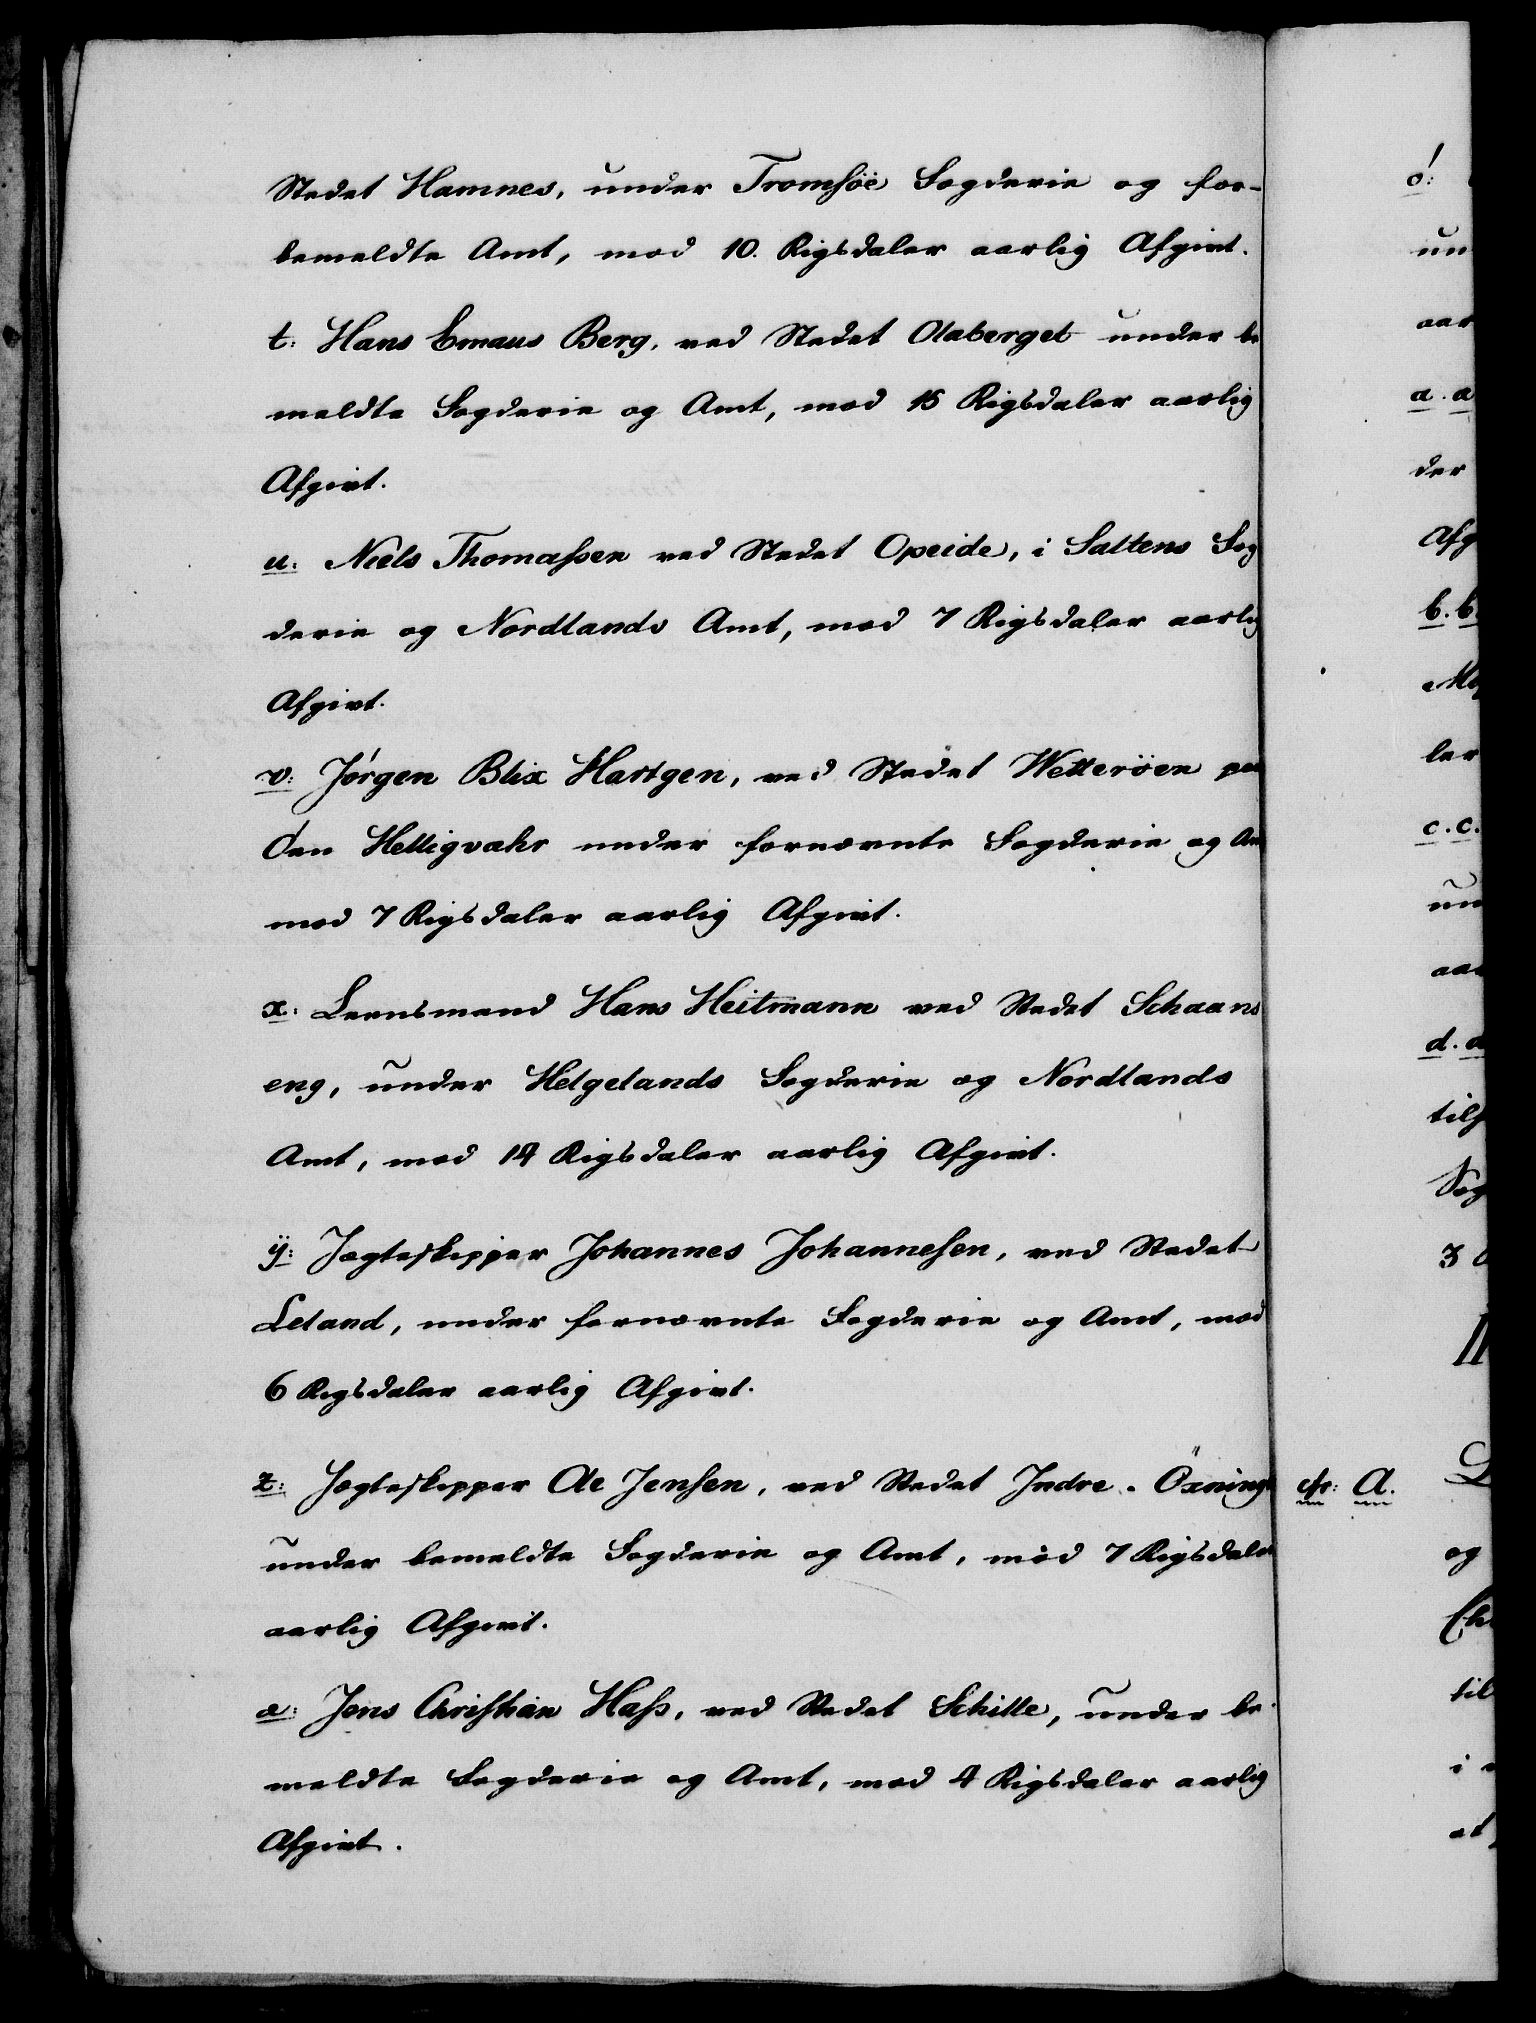 Stedet Hamnes, under Tromsöe Fogderie og for-
bemeldte Amt, mod 10. Rigsdaler aarlig Afgivt.
t: Hans Emaus Berg, ved Stedet Olaberget under be
meldte Fogderie og Amt, mod 15 Rigsdaler aarlig
Afgivt.
u: Niels Thomassen ved Stedet Opeide, i Saltens Fog
derie og Nordlands Amt, mod 7 Rigsdaler aarlig
Afgivt.
v: Jørgen Blix Hartgen, ved Stedet Wetteröen paa
Öen Helligvahr under fornævnte Fogderie og Am
mod 7 Rigsdaler aarlig Afgivt.
x: Leensmand Hans Heitmann ved Stedet Schaans
eng, under Helgelands Fogderie og Nordlands
Amt, mod 14 Rigsdaler aarlig Afgivt.
ÿ: Jægteskipper Johannes Johannesen, ved Stedet
Leland, under fornævnte Fogderie og Amt, mod
6 Rigsdaler aarlig Afgivt.
z: Jægteskipper Ole Jensen, ved Stedet Indre-Öxning
under bemeldte Fogderie og Amt, mod 7 Rigsdaler
aarlig Afgivt.
æ: Jens Christian Hass, ved Stedet Schille, under be-
meldte Fogderie og Amt, mod 4 Rigsdaler aarlig
Afgivt.
ø:
un
aar
a.a
der
Afg
b.b
ler
c.c.
un
aar
d.d
Fog
3
II
cfr: A.
og
til
i
at